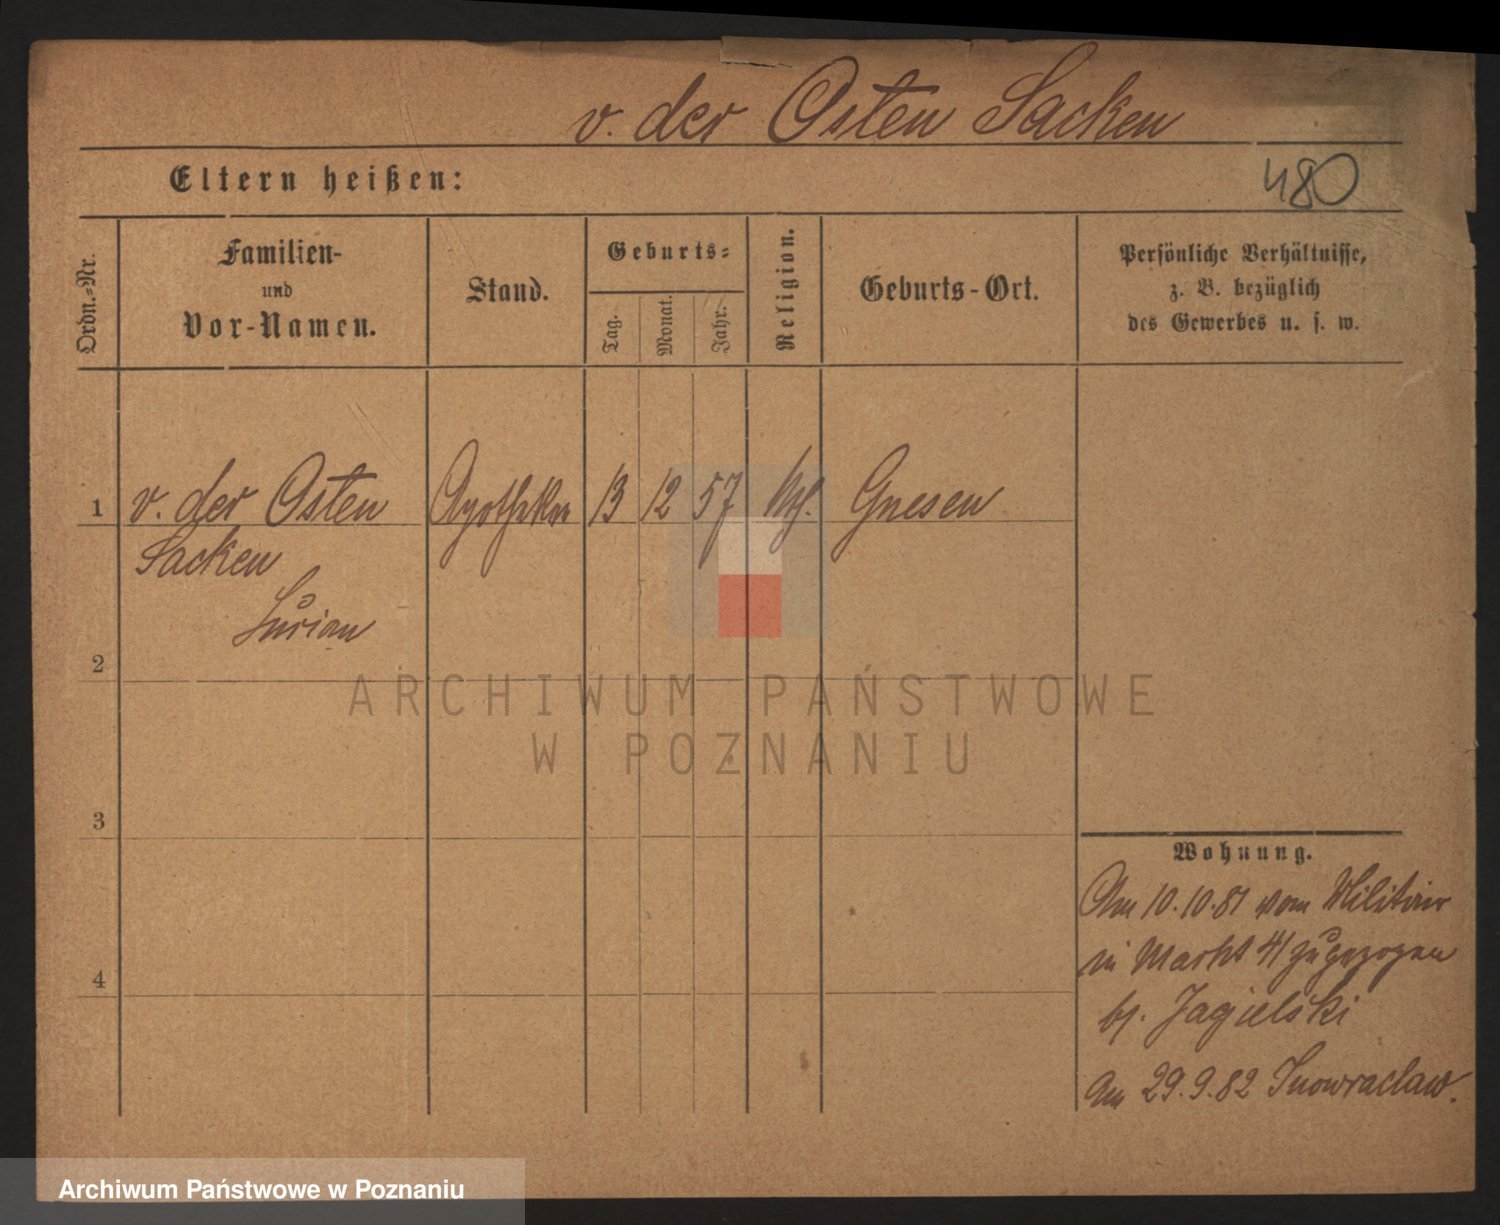 v. der Osten Sacken
Eltern heißen:
480
Ordn.-Nr.
Familien-
und
Vor-Namen.
Stand.
Geburts-
Tag.
Monat.
Jahr.
Religion.
Geburts-Ort.
Persönliche Verhältnisse,
z. B. bezüglich
des Gewerbes u. s. w.
1 v. der Osten Apotheker 13 12 57 Gnesen
Sacken
2
3
4
Wohnung.
Am 10.10.81 vom Militair
in Markt 41 zugezogen
bj. Jagielski
Am 29.9.82 Inowraclaw.
ARCHIWUM PAŃSTWOWE
W POZNANIU
Archiwum Państwowe w Poznaniu